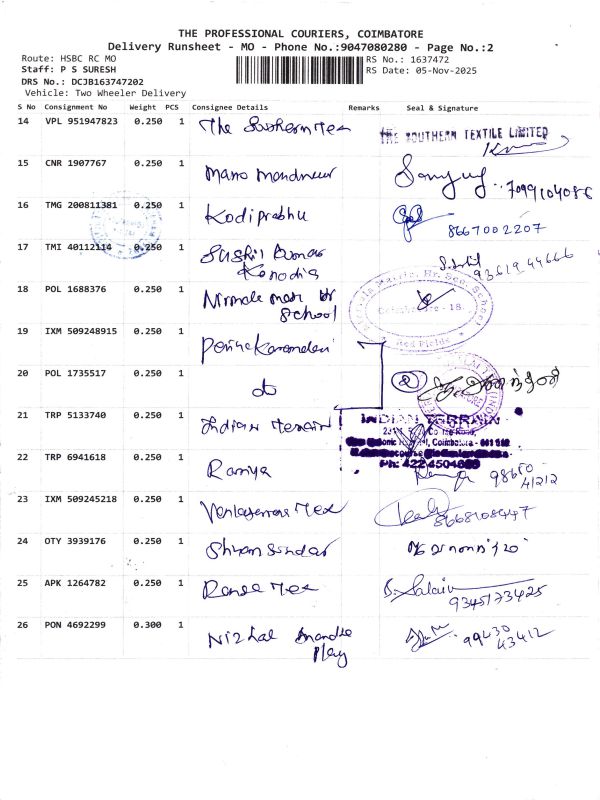 THE PROFESSIONAL COURIERS, COIMBATORE
Delivery Runsheet - MO - Phone No.:9047080280 - Page No.:2
Route: HSBC RC MO
RS No.: 1637472
Staff: P S SURESH
RS Date: 05-Nov-2025
DRS No.: DCJB163747202
Vehicle: Two Wheeler Delivery
S No Consignment No Weight PCS Consignee Details Remarks Seal & Signature
14 VPL 951947823 0.250 1 The Southern Tex THE SOUTHERN TEXTILE LIMITED
15 CNR 1907767 0.250 1 Mano 7099104086
16 TMG 200811381 0.250 1 Kodiprabhu 8667002207
17 TMI 40112114 0.250 1 Sushil Kumar
Kanodia 9361944666
18 POL 1688376 0.250 1 Nirmala Matr Hr
School Nirmala Matric. Hr. Sec. School Coimbatore - 18. Red Fields
19 IXM 509248915 0.250 1
20 POL 1735517 0.250 1 do
21 TRP 5133740 0.250 1 Indian Terrain INDIAN TERRAIN
Coimbatore - 641 018
Ph: 422 4504669
22 TRP 6941618 0.250 1 Ramya 98650
41212
23 IXM 509245218 0.250 1 8668108447
24 OTY 3939176 0.250 1 Shyam Sundar
25 APK 1264782 0.250 1 Ranee Tex 9345173425
26 PON 4692299 0.300 1 Nizhal
Play 99430
43412